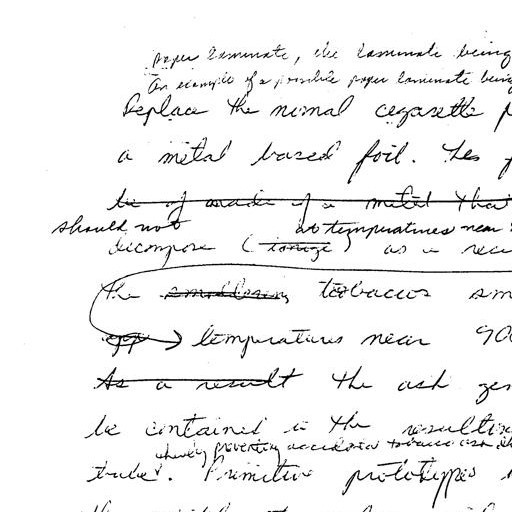 paper laminate, the laminate being
An example of a possible paper laminate being
Replace the normal cegarette p
a metal based foil. Les f
be of made of a metal that
should not at temperatures near
decompose (ionize) as a resu
the smoldering tobaccos sm
temperatures near 900
As a result the ash gen
be contained in the resulting
thereby preventing accidental tobacco ash
tube. Primitive prototypes